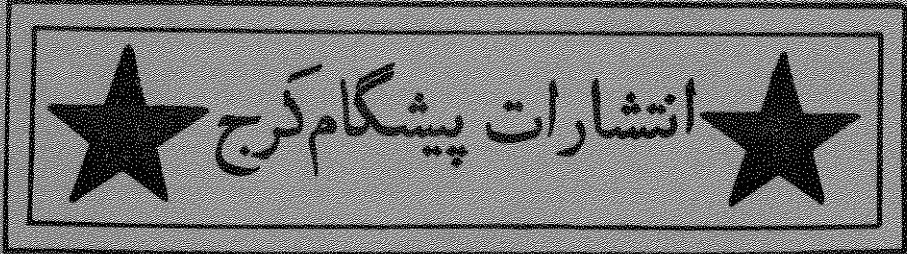 انتشارات پیشگام کرج